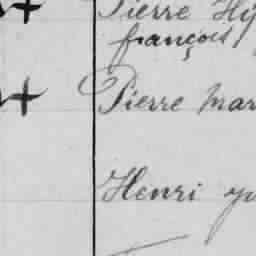 Pierre Hy
françois
Pierre Mar
Henri